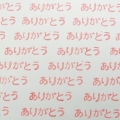 ありがとう ありがとう ありがとう
ありがとう ありがとう ありがとう
ありがとう ありがとう ありがとう
ありがとう ありがとう ありがとう
ありがとう ありがとう ありがとう
ありがとう ありがとう ありがとう
ありがとう ありがとう ありがとう